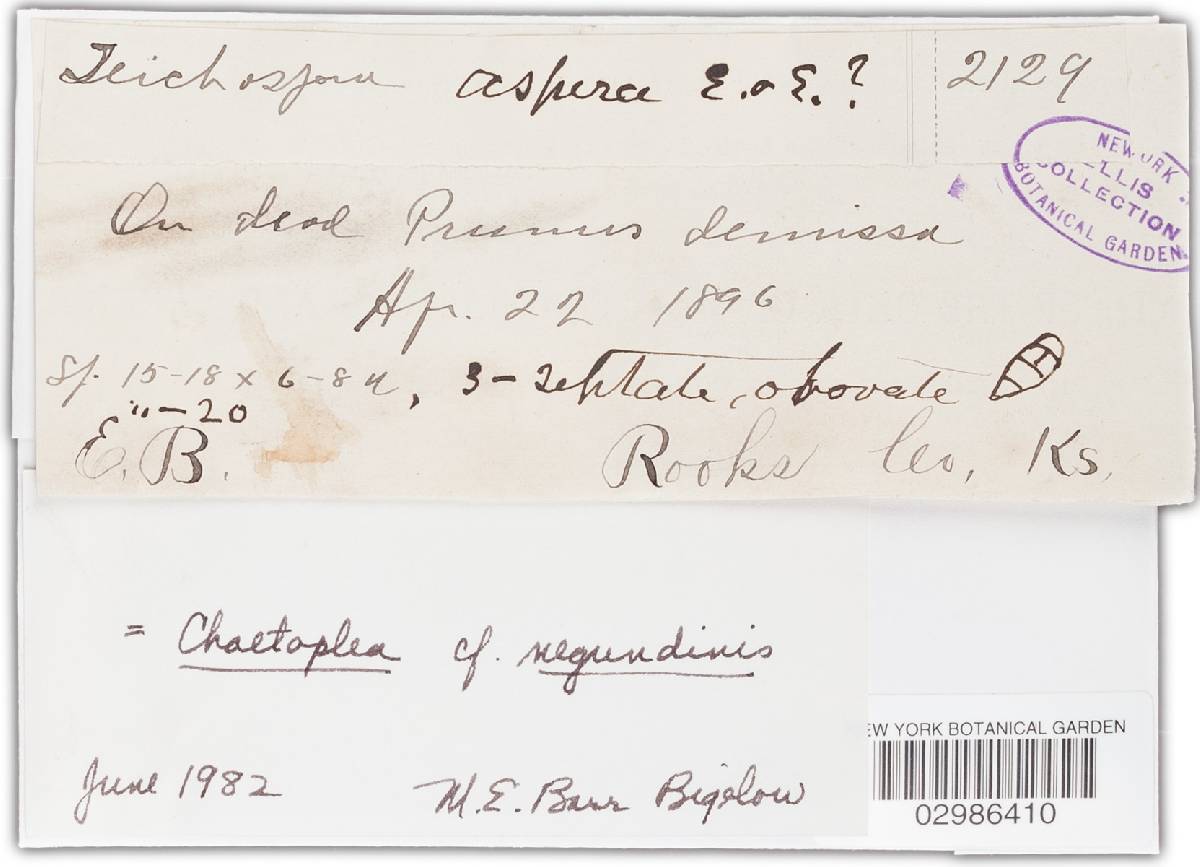 Teichospora aspera E. & E. ? 2129
NEW YORK
ELLIS
COLLECTION
BOTANICAL GARDEN.
On dead Prunus demissa
Ap. 22 1896
Sp. 15-18 x 6-8 u, 3-septate, obovate
"-20
E. B. Rooks Co, Ks.
= Chaetoplea cf. negundinis
June 1982 M.E. Barr Bigelow
EW YORK BOTANICAL GARDEN
02986410